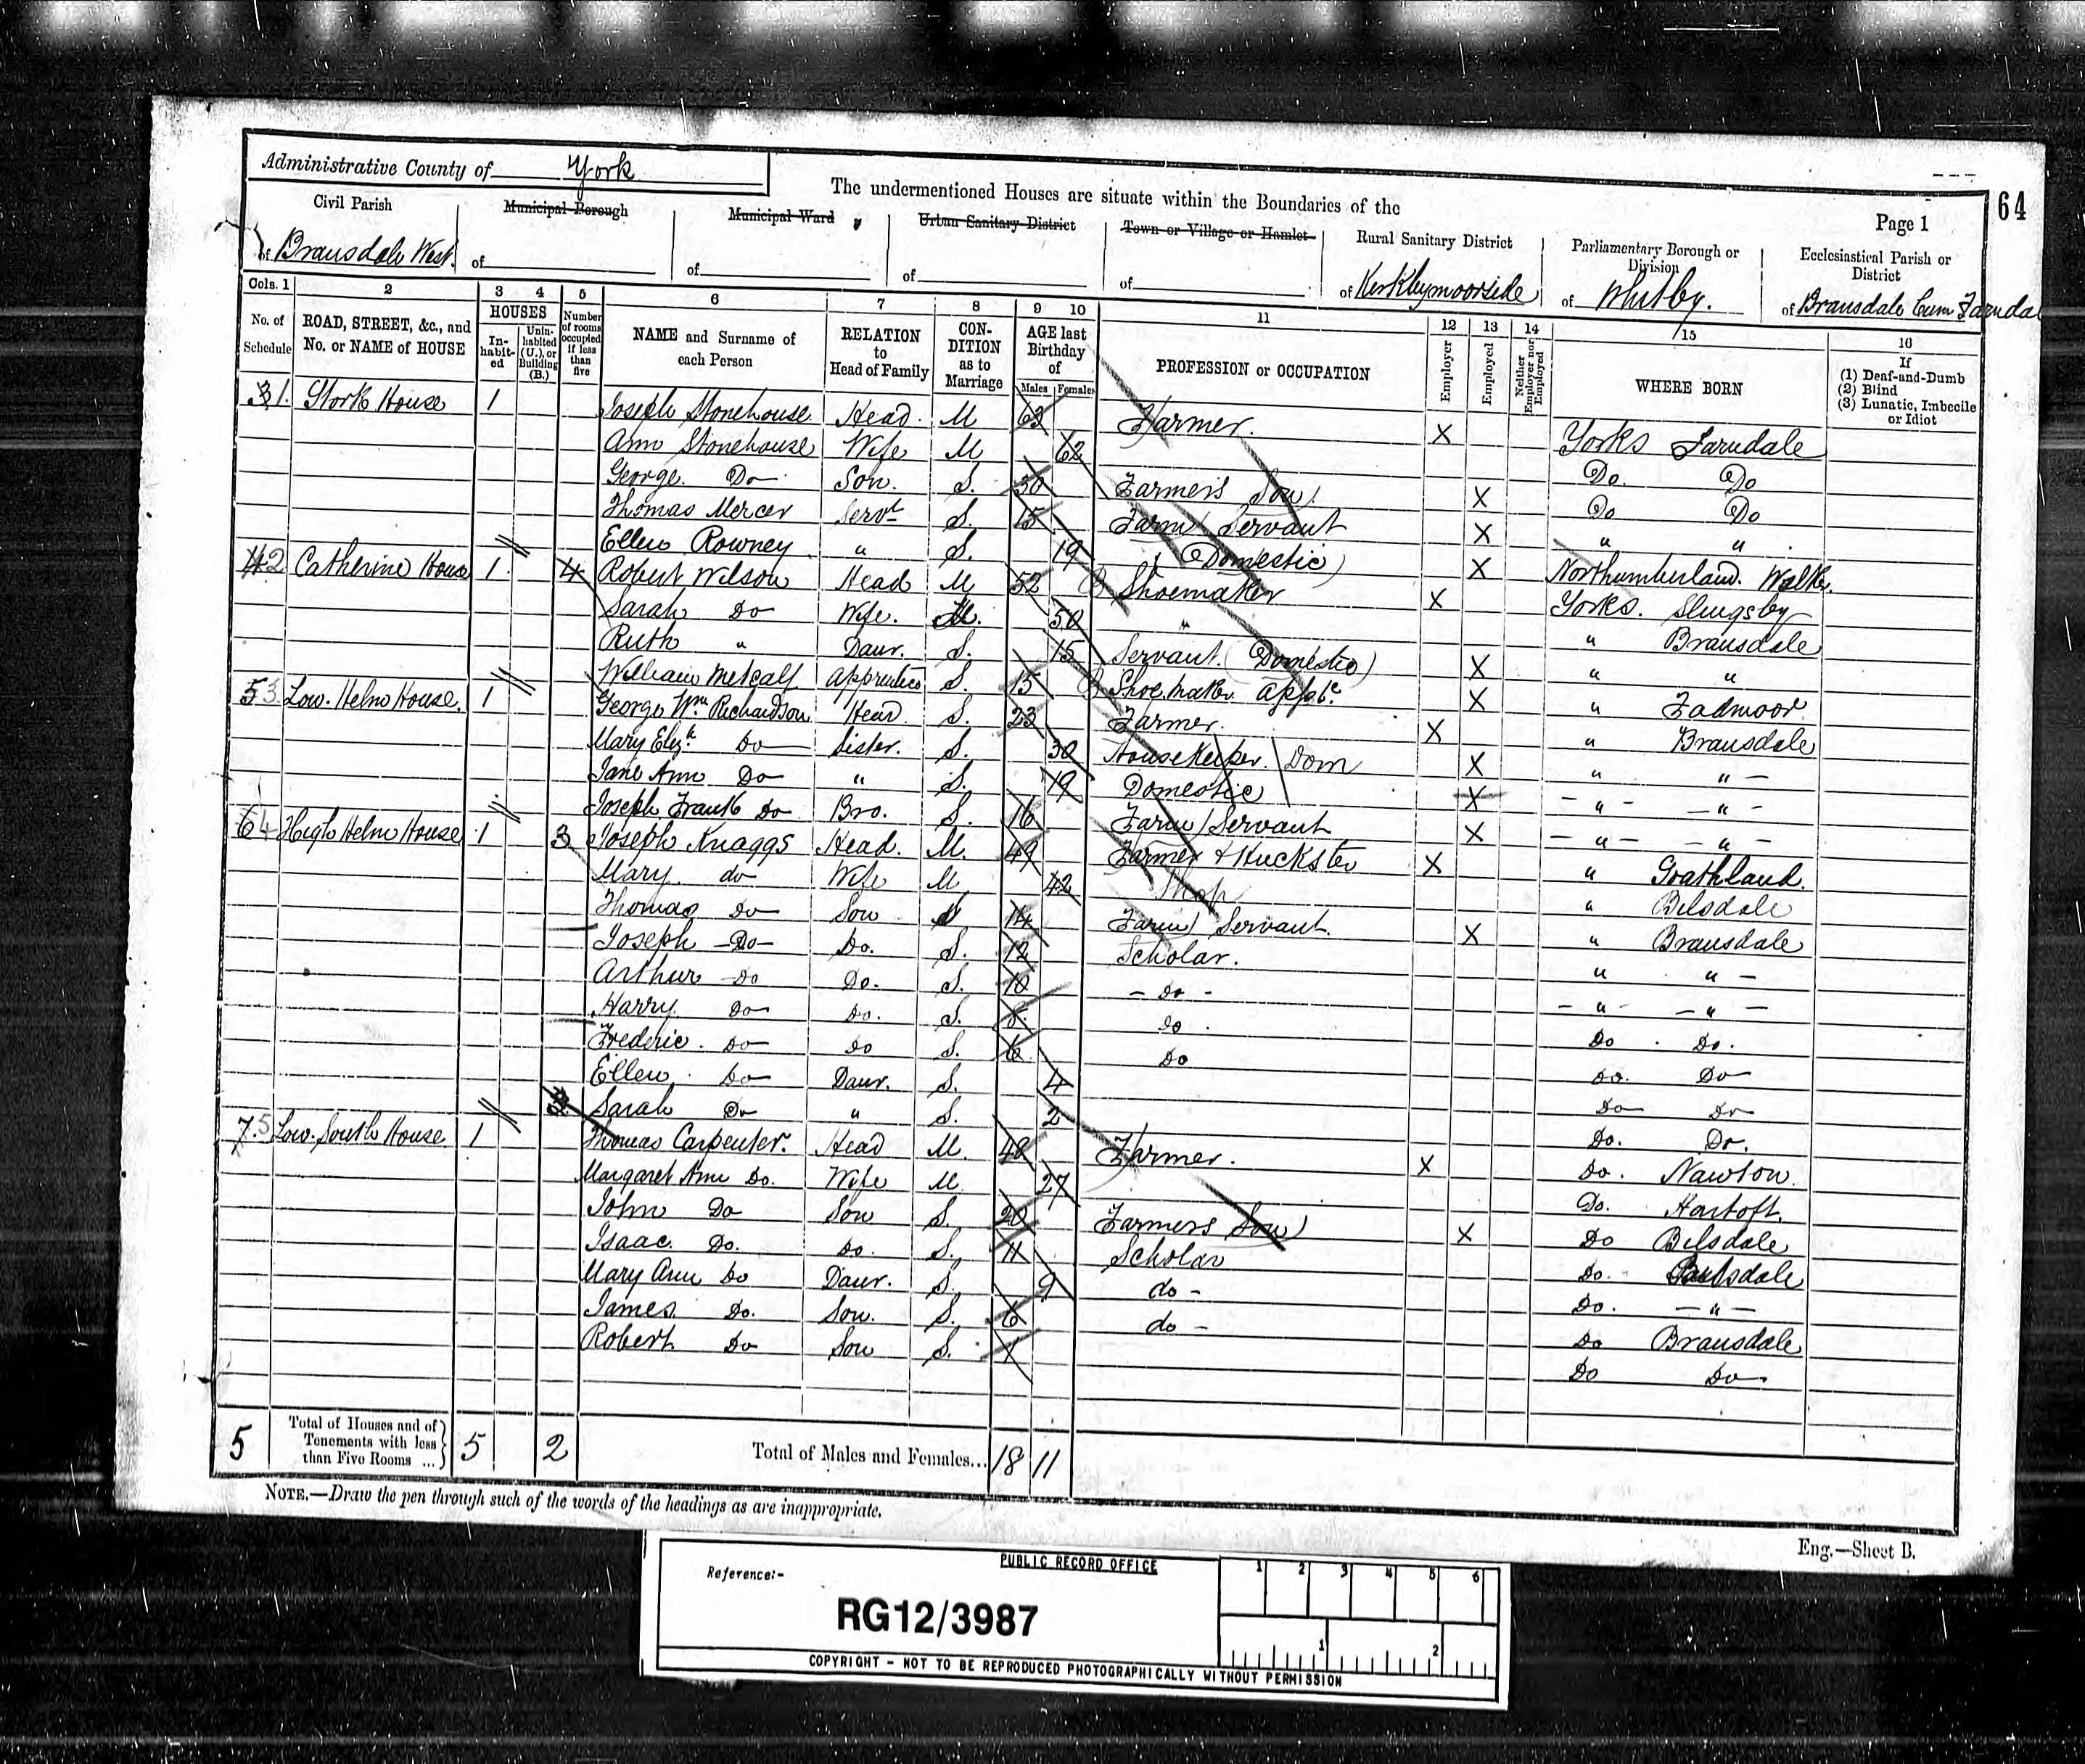 Administrative County of York
The undermentioned Houses are situate within the Boundaries of the
64
Page 1
Civil Parish
of Bransdale West.
Municipal Borough
of
Municipal Ward
of
Urban Sanitary District
of
Town or Village or Hamlet
of
Rural Sanitary District
of Kirkbymoorside
Parliamentary Borough or Division
of Whitby.
Ecclesiastical Parish or District
of Bransdale Cum Farndale
Cols. 1 2 3 4 5 6 7 8 9 10 11 12 13 14 15 16
No. of Schedule
ROAD, STREET, &c., and No. or NAME of HOUSE
HOUSES
In-habit-ed
Unin-habited (U.), or Building (B.)
Number of rooms occupied if less than five
NAME and Surname of each Person
RELATION to Head of Family
CON-DITION as to Marriage
AGE last Birthday of
Males Females
PROFESSION or OCCUPATION
Employer
Employed
Neither Employer nor Employed
WHERE BORN
If
(1) Deaf-and-Dumb
(2) Blind
(3) Lunatic, Imbecile or Idiot
31. Stork House 1 Joseph Stonehouse Head. M 63 Farmer. X Yorks Farndale
Ann Stonehouse Wife M 62 Do. Do
George. Do Son. S. 30 Farmers Son X Do Do
Thomas Mercer Servt S. 15 Farm Servant X " "
Ellen Rowney " S. 19 " (Domestic) X Northumberland. Walker.
42 Catherine House 1 4 Robert Wilson Head M 52 Shoemaker X Yorks. Slingsby
Sarah Do Wife. M. 50 " " Bransdale
Ruth " Daur. S. 15 Servant (Domestic) X " "
William Metcalf Apprentice S. 15 Shoemaker Appte. X " Fadmoor
53 Low. Helm House. 1 George Wm Richardson Head S. 23 Farmer. X " Bransdale
Mary Elizth Do Sister. S. 30 Housekeeper. Dom X " "
Jane Ann Do " S. 19 Domestic X " "
Joseph Frank Do Bro. S. 16 Farm Servant X " "
64 High Helm House 1 3 Joseph Knaggs Head. M. 49 Farmer & Huckster X " Goathland.
Mary do Wife M 42 Shop " Bilsdale
Thomas Do Son S 14 Farm Servant. X " Bransdale
Joseph -Do- Do. S. 12 Scholar. " "
Arthur Do Do. S. 10 - Do - " "
Harry. Do Do. S. 8. Do. Do. Do.
Frederic. Do Do S. 6 Do Do. Do
Ellen. Do Daur. S. 4 Do Do
Sarah Do " S. 2 Do. Do.
75 Low. South House 1 Thomas Carpenter. Head M. 48 Farmer. X Do. Nawton.
Margaret Ann Do. Wife M. 27 Do. Hartoft.
John Do Son S. 20 Farmers Son X Do Bilsdale
Isaac. Do. Do. S. 11 Scholar Do.
Mary Ann Do Daur. S. 9 do - Do. - " -
James. Do. Son. S. 6 do - Do Bransdale
Robert Do Son S. 1 Do Do
5 Total of Houses and of Tenements with less than Five Rooms ... 5 2 Total of Males and Females... 18 11
NOTE.—Draw the pen through such of the words of the headings as are inappropriate.
Eng.—Sheet B.
PUBLIC RECORD OFFICE
1 2 3 4 5 6
Reference:-
RG12/3987
1 2
COPYRIGHT - NOT TO BE REPRODUCED PHOTOGRAPHICALLY WITHOUT PERMISSION